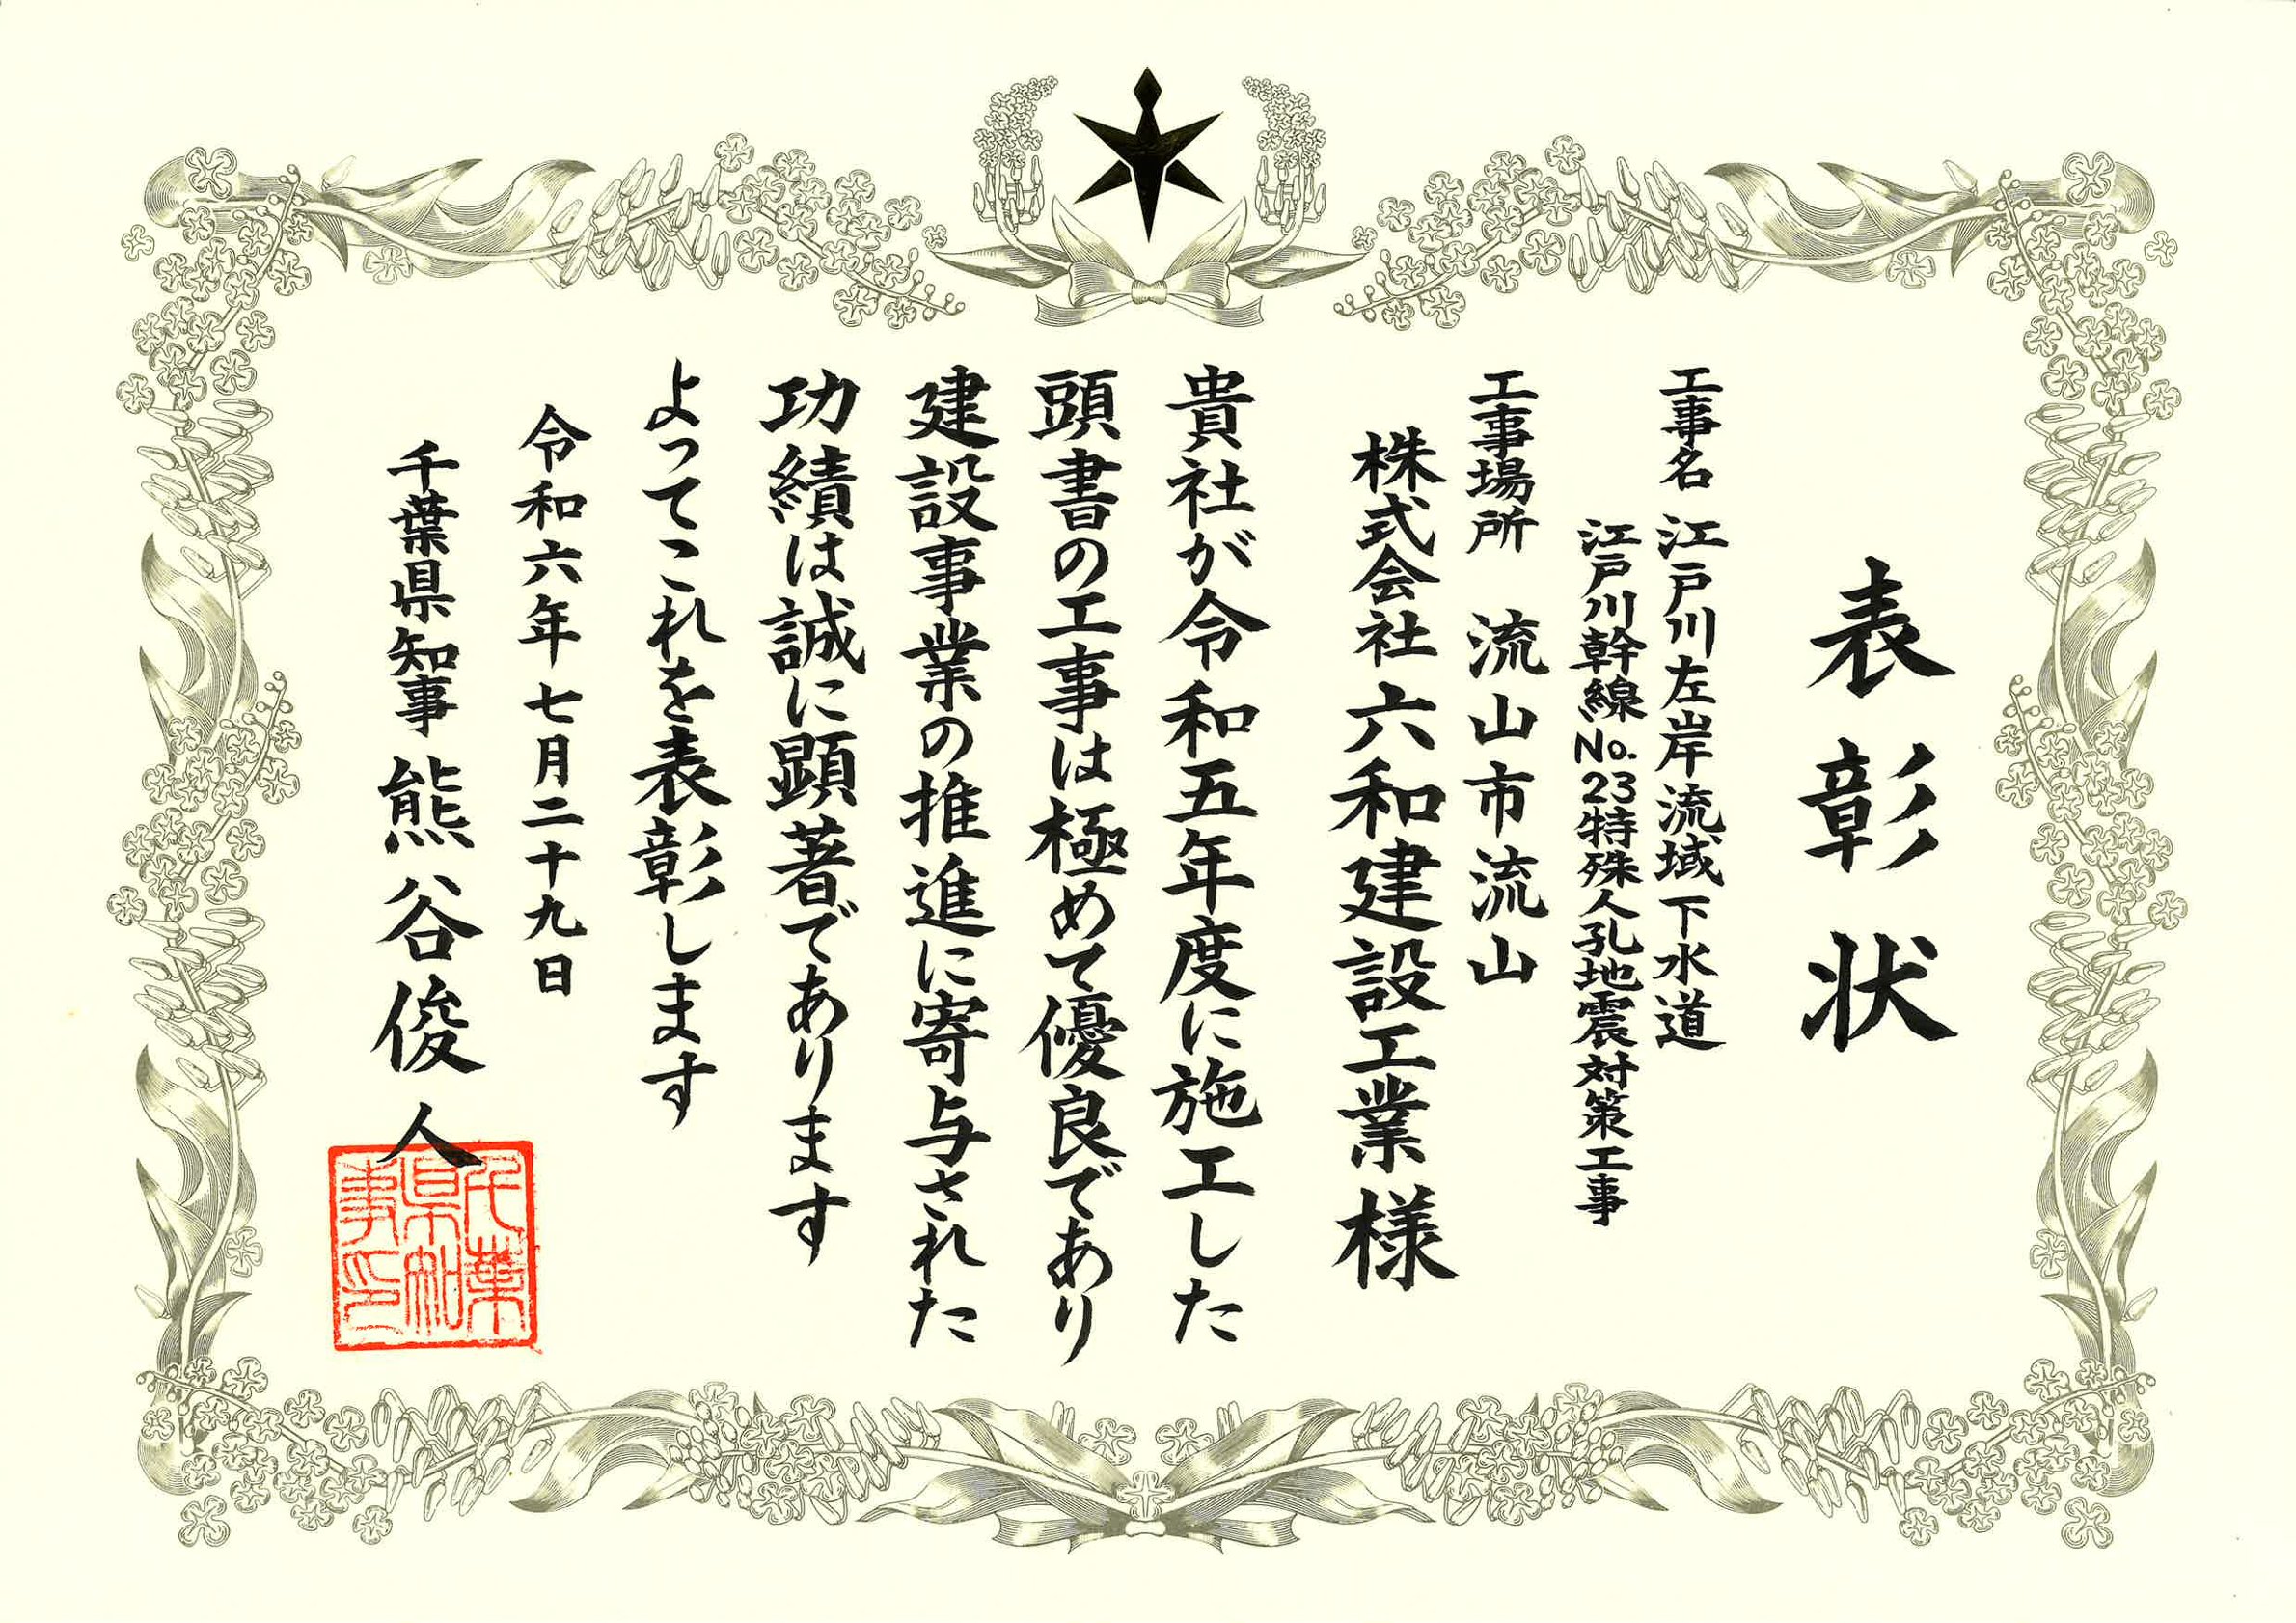 表彰状
工事名 江戸川左岸流域下水道
江戸川幹線No.23特殊人孔地震対策工事
工事場所 流山市流山
株式会社六和建設工業様
貴社が令和五年度に施工した
頭書の工事は極めて優良であり
建設事業の推進に寄与された
功績は誠に顕著であります
よってこれを表彰します
令和六年七月二十九日
千葉県知事 熊谷俊人
千葉
県知
事印